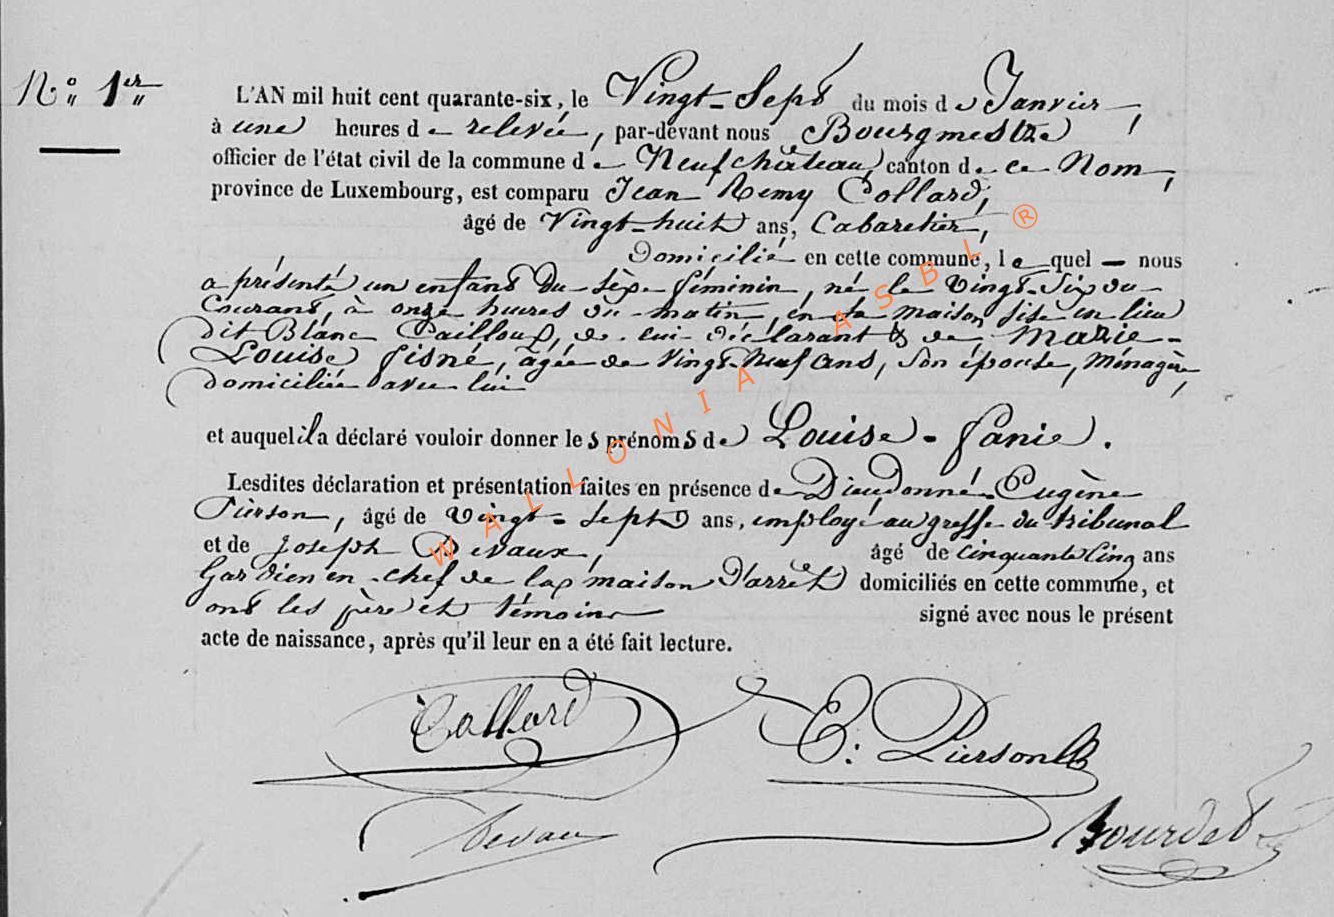 N° 1er
L'AN mil huit cent quarante-six, le Vingt-Sept du mois de Janvier,
à une heures de relevée, par-devant nous Bourgmestre
officier de l'état civil de la commune de Neufchâteau, canton de ce Nom,
province de Luxembourg, est comparu Jean Remy Collard,
âgé de Vingt-huit ans, Cabaretier,
Domicilié en cette commune, lequel — nous
a présenté un enfant du sèxe féminin, né le Vingt-Six du
Courant, à onze heures du matin, en sa maison sise en lieu
dit Blanc Cailloux, de lui déclarant & de Marie-
Louise Gisne, âgée de Vingt-Neuf ans, Son épouse, Ménagère,
domiciliée avec lui
et auquel il a déclaré vouloir donner les prénoms de Louise-Fanie.
Lesdites déclaration et présentation faites en présence de Dieudonné-Eugène
Pierson, âgé de Vingt-Sept ans, employé au greffe du tribunal
et de Joseph Devaux, âgé de cinquante Cinq ans
Gardien en chef de la maison d'arrêt domiciliés en cette commune, et
ont les père et témoins signé avec nous le présent
acte de naissance, après qu'il leur en a été fait lecture.
Collard
E: Pierson
Devaux
WALLONIA ASBL ®